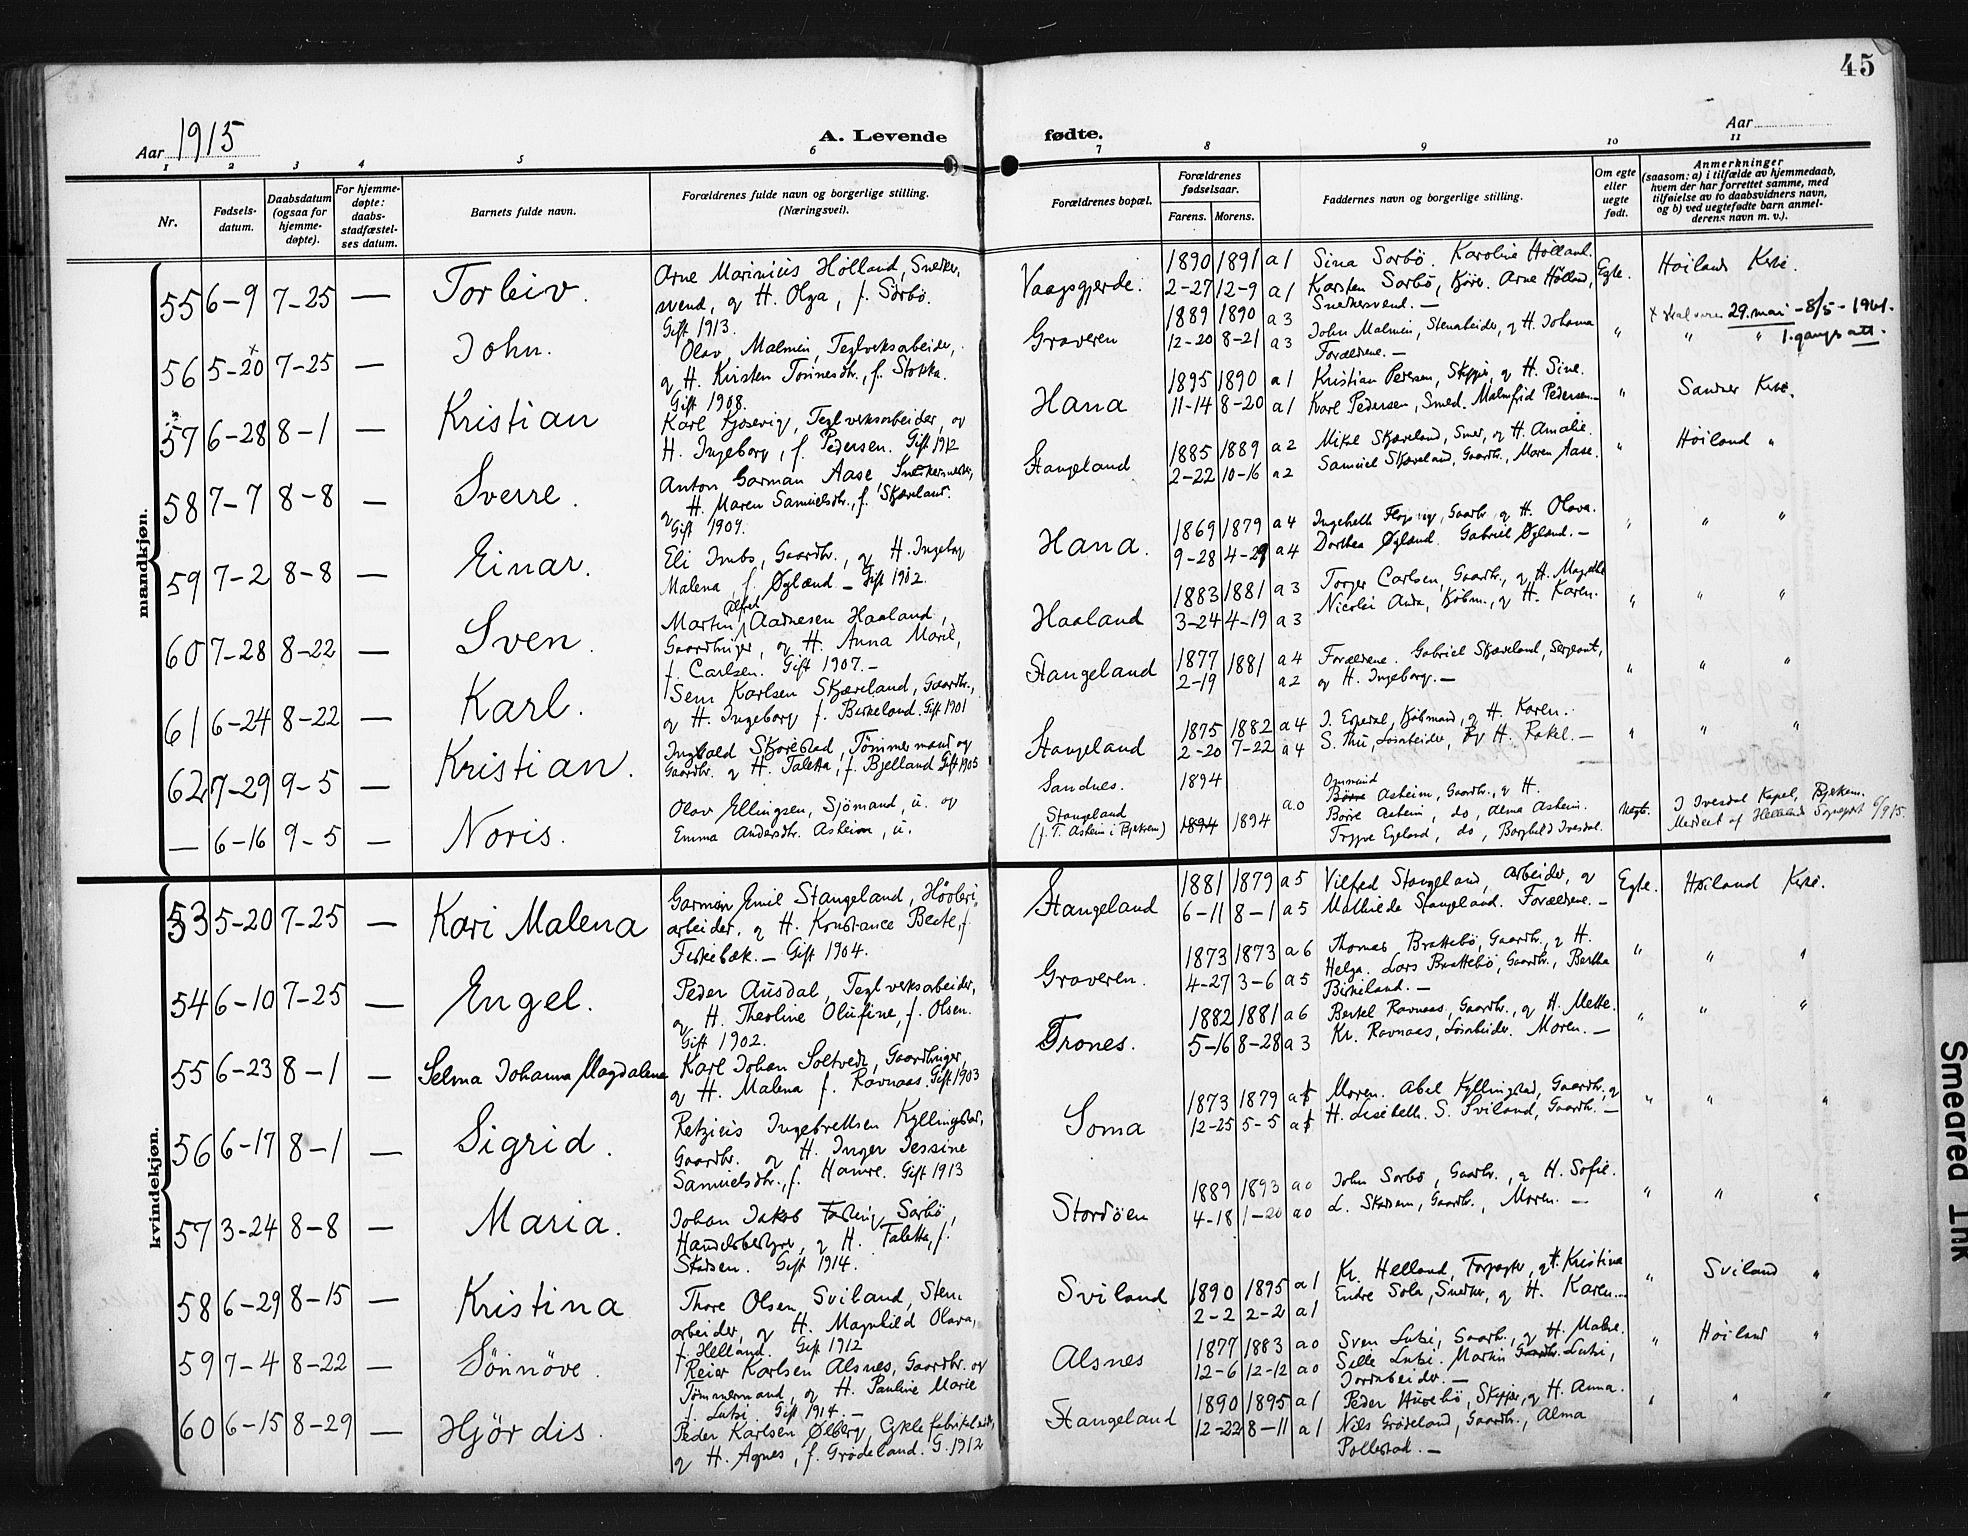 45
Aar 1915
A. Levende fødte.
Aar
1 2 3 4 5 6 7 8 9 10 11
Nr.
Fødsels-
datum.
Daabsdatum
(ogsaa for
hjemme-
døpte).
For hjemme-
døpte:
daabs-
stadfæstel-
ses datum.
Barnets fulde navn.
Forældrenes fulde navn og borgerlige stilling.
(Næringsvei).
Forældrenes bopæl.
Forældrenes
fødselsaar.
Farens. Morens.
Faddernes navn og borgerlige stilling.
Om egte
eller
uegte
født.
Anmerkninger
(saasom: a) i tilfælde av hjemmedaab,
hvem der har forrettet samme, med
tilføielse av to daabsvidners navn,
og b) ved uegtefødte barn anmel-
derens navn m. v.).
mandkjøn.
55 6-9 7-25 — Torleiv.
Arne Marinius Hølland, Snedker-
svend, og H. Olga, f. Sørbö.
Gift 1913.
Vaagsgjerde. 1890 1891 a 1
2-27 12-9 a 1
Sina Sørbö. Karoline Hølland.
Karsten Sørbö, Arne Hølland,
Snekersvend. —
Egte. Høiland Kirke.
56 5-20 x 7-25 — John.
Olav Malmin, Teglverksarbeider,
og H. Kirsten Tønnesdtr., f. Stokka.
Gift 1908.
Graveren 1889 1890 a 3
12-20 8-21 a 3
John Malmin, Stenarbeider, og H. Johanna
Forældrene. —
" x skal være 29. mai - 8/5 - 1961.
" " T. gangs att.
57 6-28 8-1 — Kristian
Karl Fjosevig, Teglverksarbeider, og
H. Ingeborg, f. Pedersen. Gift 1912
Hana 1895 1890 a 1
11-14 8-20 a 1
Kristian Pedersen, Skipper, og H. Sine.
Karl Pedersen, Smed. Malmfrid Pedersen. —
" Sandnes Kirke.
58 7-7 8-8 — Sverre.
Anton Gorman Aase, Snekkermester,
og H. Maren Samuelsdtr., f. Skjæveland.
Gift 1909.
Stangeland 1885 1889 a 2
2-22 10-16 a 2
Mikal Skjæveland, Smed, og H. Amalie.
Samuel Skjæveland, Gaardbr., Maren Aase.
" Høiland "
59 7-2 8-8 — Einar.
Eli Imbs, Gaardbr., og H. Ingeborg
Malena, f. Øgland — Gift 1902.
Hana. 1869 1879 a 4
9-28 4-29 a 4
Gaardbr., og H. Olava.
Dorthea Øgland. Gabriel Øgland. —
" " "
60 7-28 8-22 — Sven.
Martin Alfred Aadnesen Haaland,
Gaardbruger, og H. Anna Marie,
f. Carlsen. Gift 1907. —
Haaland 1883 1881 a 3
3-24 4-19 a 3
Torger Carlsen, Gaardbr., og H. Magrethe
Nicolai Anda, Kjøbm., og H. Karen.
" " "
61 6-24 8-22 — Karl.
Sem Karlsen Skjæveland, Gaardbr.,
og H. Ingeborg f. Birkeland. Gift 1901
Stangeland 1877 1881 a 4
2-19 a 2
Forældrene. Gabriel Skjæveland, Sergeant,
og H. Ingeborg. —
" " "
62 7-29 9-5 — Kristian.
Ingvald Skjørestad, Tømmermand og
Gaardbr. og H. Taletta, f. Bjelland Gift 1905
Stangeland 1875 1882 a 4
2-20 7-22 a 4
J. Egedal, Kjøbmand, og H. Karen.
S. Thu, Løsarbeider, og H. Rakel. —
" " "
— 6-16 9-5 — Noris.
Olav Ellingsen, Sjömand, u. og
Emma Andersdtr. Asheim, u.
Sandnes. 1894
Stangeland
(f. T. Asheim i Bjerkrem) 1894 1894 a. 0
Ommund
Børre Asheim, Gaardbr., og H.
Børre Asheim, do, Alma Asheim.
Trygve Egeland, do, Borghild Ivesdal.
Uegte. I Ivesdal Kapel, Bjerkrem.
Meldt af Helleland Sogneprst 6/9 15.
kvindekjøn.
53 5-20 7-25 — Kari Malena
Gorman Emil Stangeland, Høvleri-
arbeider, og H. Konstance Beate, f.
Fiskebæk. — Gift 1904.
Stangeland 1881 1879 a 5
6-11 8-1 a 5
Vilfred Stangeland, Arbeider, og
Mathilde Stangeland. Forældrene. —
Egte. Høiland Kirke.
54 6-10 7-25 — Engel.
Peder Ausdal, Teglverksarbeider,
og H. Theoline Olufine, f. Olsen.
Gift 1902.
Graveren. 1873 1873 a 6
4-27 3-6 a 5
Thomas Brattebö, Gaardbr., og H.
Helga. Lars Brattebö, Gaardbr., Bertha
Birkeland. —
" " "
55 6-23 8-1 — Selma Johanna Magdalena
Karl Johan Soltvedt, Gaardbruger,
og H. Malena f. Ravnaas. Gift 1903
Trones. 1882 1881 a 6
5-16 8-28 a 3
Bertel Ravnaas, Gaardbr., og H. Mette.
Kr. Ravnaas, Løsarbeider. Moren. —
" " "
56 6-17 8-1 — Sigrid.
Retzius Ingebretsen Kyllingstad,
Gaardbr. og H. Inger Jessine
Samuelsdtr., f. Hamre. Gift 1913
Soma 1873 1879 a 1
12-25 5-5 a 1
Moren. Abel Kyllingstad, Gaardbr., og
H. Lisebeth. S. Sviland, Gaardbr. —
" " "
57 3-24 8-8 — Maria.
Johan Jakob Sørbö,
Handelsbestyrer, og H. Taletta, f.
Skadsem. Gift 1914.
Stordöen 1889 1893 a 0
4-18 1-20 a 0
John Sørbö, Gaardbr., og H. Sofie.
L. Skadsem, Gaardbr., Moren. —
" " "
58 6-29 8-15 — Kristina
Thore Olsen Sviland, Sten-
arbeider, og H. Magnhild Olava,
f. Helland. Gift 1912
Sviland 1890 1895 a 1
2-2 2-2 a 1
Kr. Helland, Forpagter, og H. Kristina
Endre Sola, Snedker, og H. Karen. —
" Sviland "
59 7-4 8-22 — Sönnöve.
Reier Karlsen Alsnes, Gaardbr. og
Tømmermand, og H. Pauline Marie
f. Lutsi. Gift 1914. —
Alsnes 1877 1883 a 0
12-6 12-12 a 0
Sven Lutsi, Gaardbr., og H. Malene.
Sille Lutsi. Martin Gaardbr. Lutsi,
Jordarbeider. —
" Høiland "
60 6-15 8-29 — Hjördis.
Peder Karlsen Ølberg, Cyklefabrikarb.,
og H. Agnes, f. Grødeland. G. 1912
Stangeland 1890 1895 a 1
12-22 8-11 a 1
Peder Aurebö, Skipper, og H. Anna.
Nils Grødeland, Gaardbr., Alma
Pollestad. —
" " "
Smeared Ink